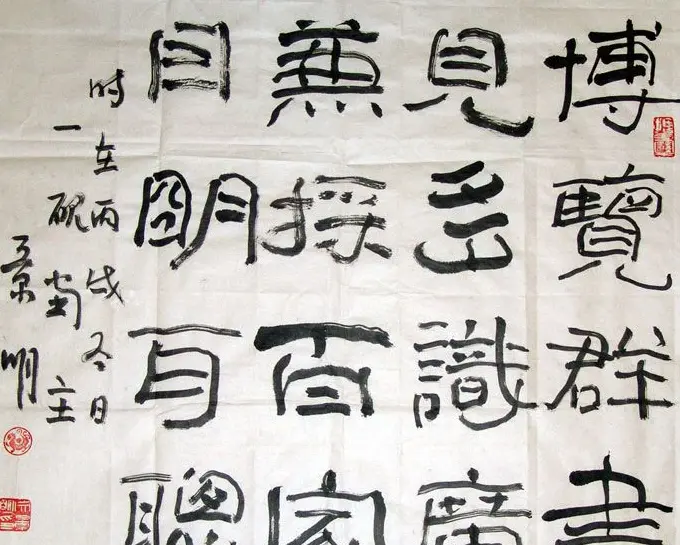 博覽群書
見多識廣
兼採百家
目明耳聰
时在丙戌冬日
一砚堂主
景明